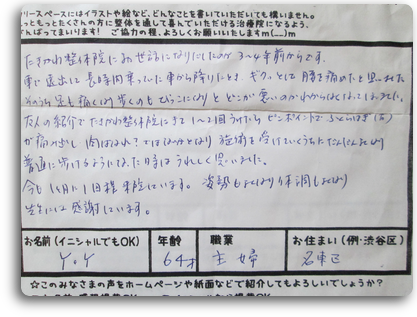 リースペースにはイラストや絵など、どんなことを書いていただいても構いません。
っともっとたくさんの方に整体を通して喜んでいただける治療院になるよう、
んばってまいります! ご協力の程、よろしくお願いいたします m(......)m
たきかわ整体院にお世話になりだしたのが3〜4年前からです。
車で遠出して長時間乗っていた車から降りたとき、ギクッとして腰を痛めたと思われ
そのうち足も痛くなり歩くのもつらくなり どこが悪いのかわからなくなってしまった。
友人の紹介でたきかわ整体院にきて1〜2回うけたらピンポイントでふくらはぎ(右)
が痛み出し 肉ばなれ?ではないかとなり 施術を受けていくうちにだんだんよくなり
普通に歩けるようになった時はうれしく思いました。
今も1ヵ月に1回程来院しています。姿勢もよくなり体調もよくなり
先生には感謝しています。
お名前(イニシャルでもOK)
年齢
職業
お住まい(例:渋谷区)
Y.Y
64才
主婦
名東区
☆このみなさまの声をホームページや紙面などで紹介してもよろしいでしょうか?